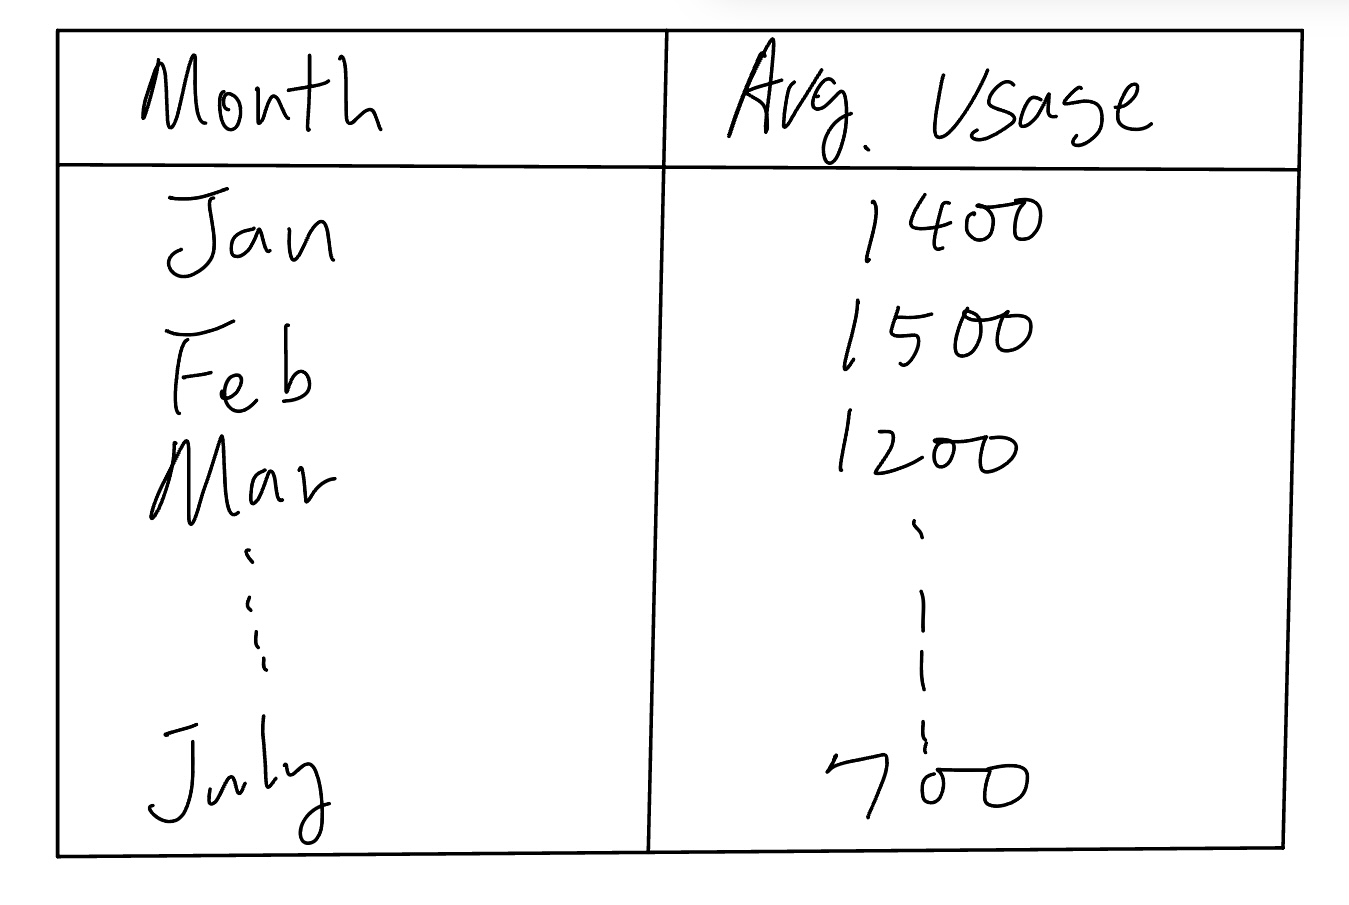 Month Avg. Usage
Jan 1400
Feb 1500
Mar 1200
July 700